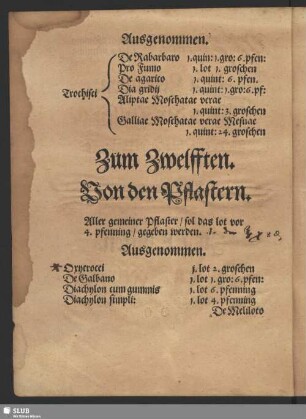 Ausgenommen.
De Rabarbaro ȷ. quin: ȷ. gro: 6. pfen:
Pro Fumo ȷ. lot ȷ. groschen
De agarico ȷ. quint: 6. pfen.
Trochisci
Dia gridij ȷ. quint: ȷ. gro: 6. pf:
Aliptae Moschatae verae
ȷ. quint: 3. groschen
Galliae Moschatae verae Mesuae
ȷ. quint: 24. groschen
Zum Zwelfften.
Von den Pflastern.
Aller gemeiner Pflaster / sol das lot vor
4. pfenning / gegeben werden.
Ausgenommen.
Oxyerocei ȷ. lot 2. groschen
De Galbano ȷ. lot ȷ. gro: 6. pfen:
Diachylon cum gummis ȷ. lot 6. pfenning
Diachylon simpli: ȷ. lot 4. pfenning
De Meliloto
SLUB